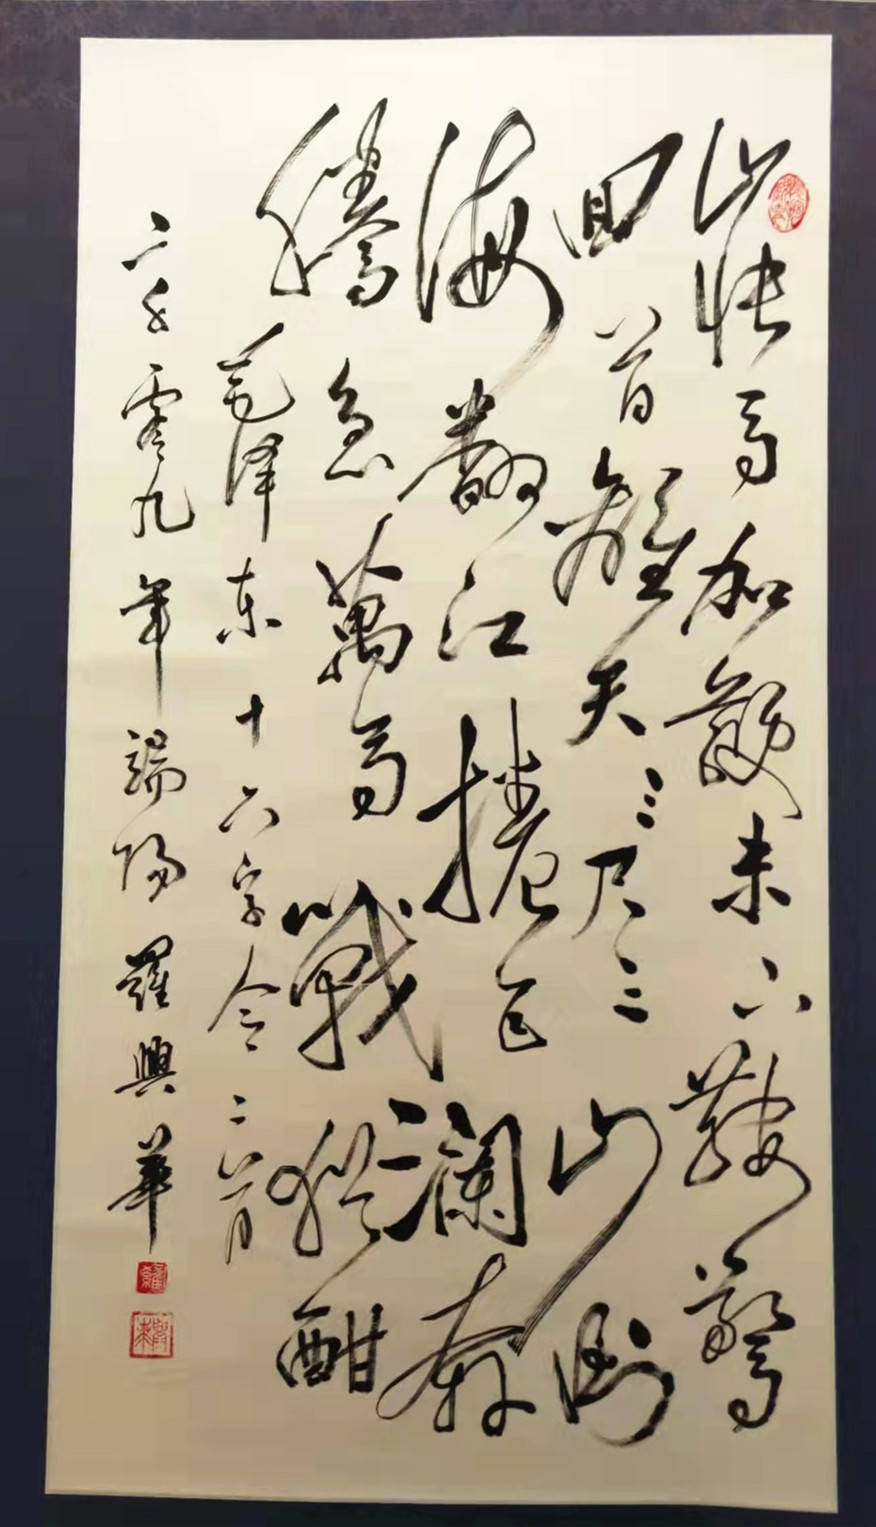 山快馬加鞭未下鞍驚
回首離天三尺三山倒
海翻江捲巨瀾奔
騰急萬馬戰猶酣
毛泽东十六字令二首
二千零九年端陽羅興華